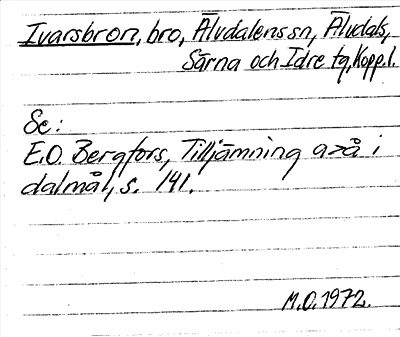 Ivarsbron, bro, Älvdalens sn, Älvdals,
Särna och Idre tg, Kopp.l.
Se:
E.O. Bergfors, Tilljämning a>å i
dalmål, s. 141.
M.O. 1972.